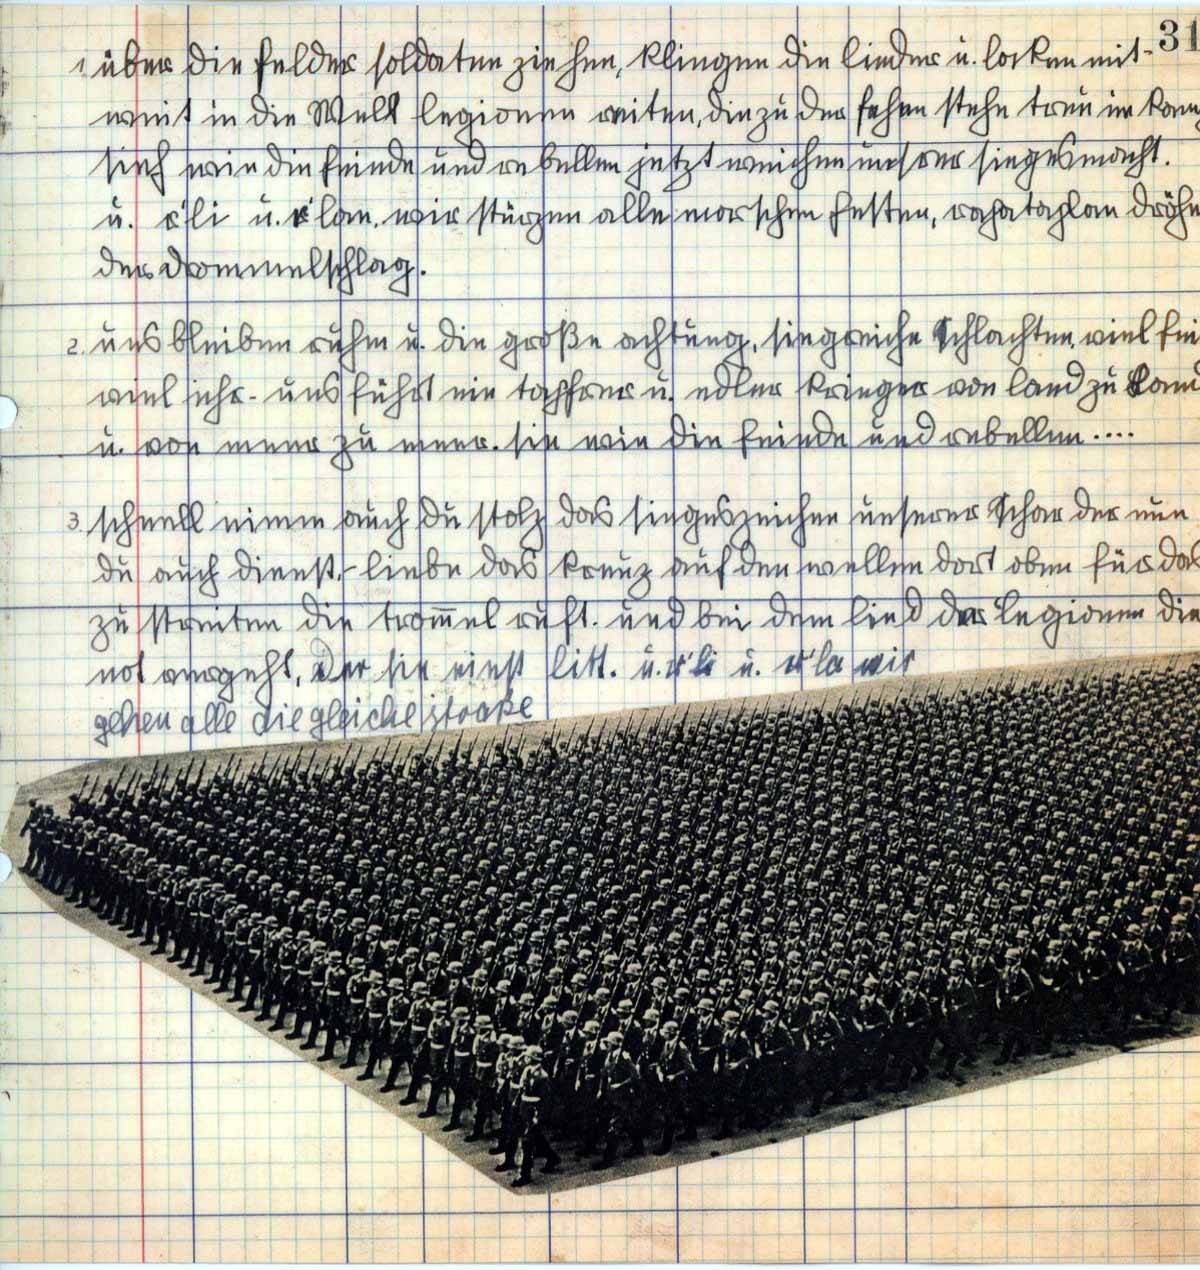 31
1 über die felder soldaten ziehen, klingen die lieder u. locken mit-
weit in die Welt legionen reiten, die zu der fahn stehe treu im
sieh wie die feinde und rebellen jetzt weichen unsrer siegesmacht.
u. r'li u. r'lan. wir stürzen alle morschen festen, rahataplan dröhn
der drommelschlag.
2. uns bleiben ruhm u. die große achtung, siegreiche Schlachten, viel fei
viel ehr- uns führt ein tapfrer u. edler krieger von land zu Land
u. von meer zu meer. sie wie die feinde und rebellen....
3. schnell nimm auch du stolz das siegeszeichen unserer Schar der nun
du auch dienst,- liebe das kreuz auf den wellen dort oben für das
zu streiten die trom̄el ruft. und bei dem lied der Legionen die
not vergeht, Der sie einst litt. u. r'li u. r'la wir
gehen alle die gleiche straße